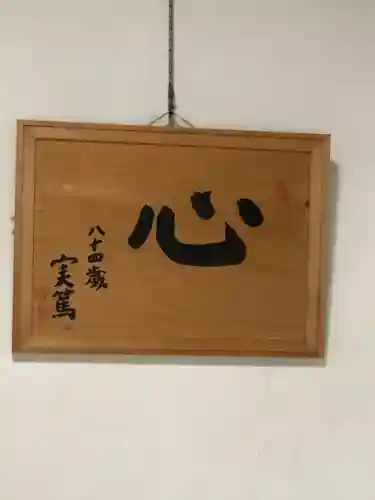 心
八十四歳
実篤